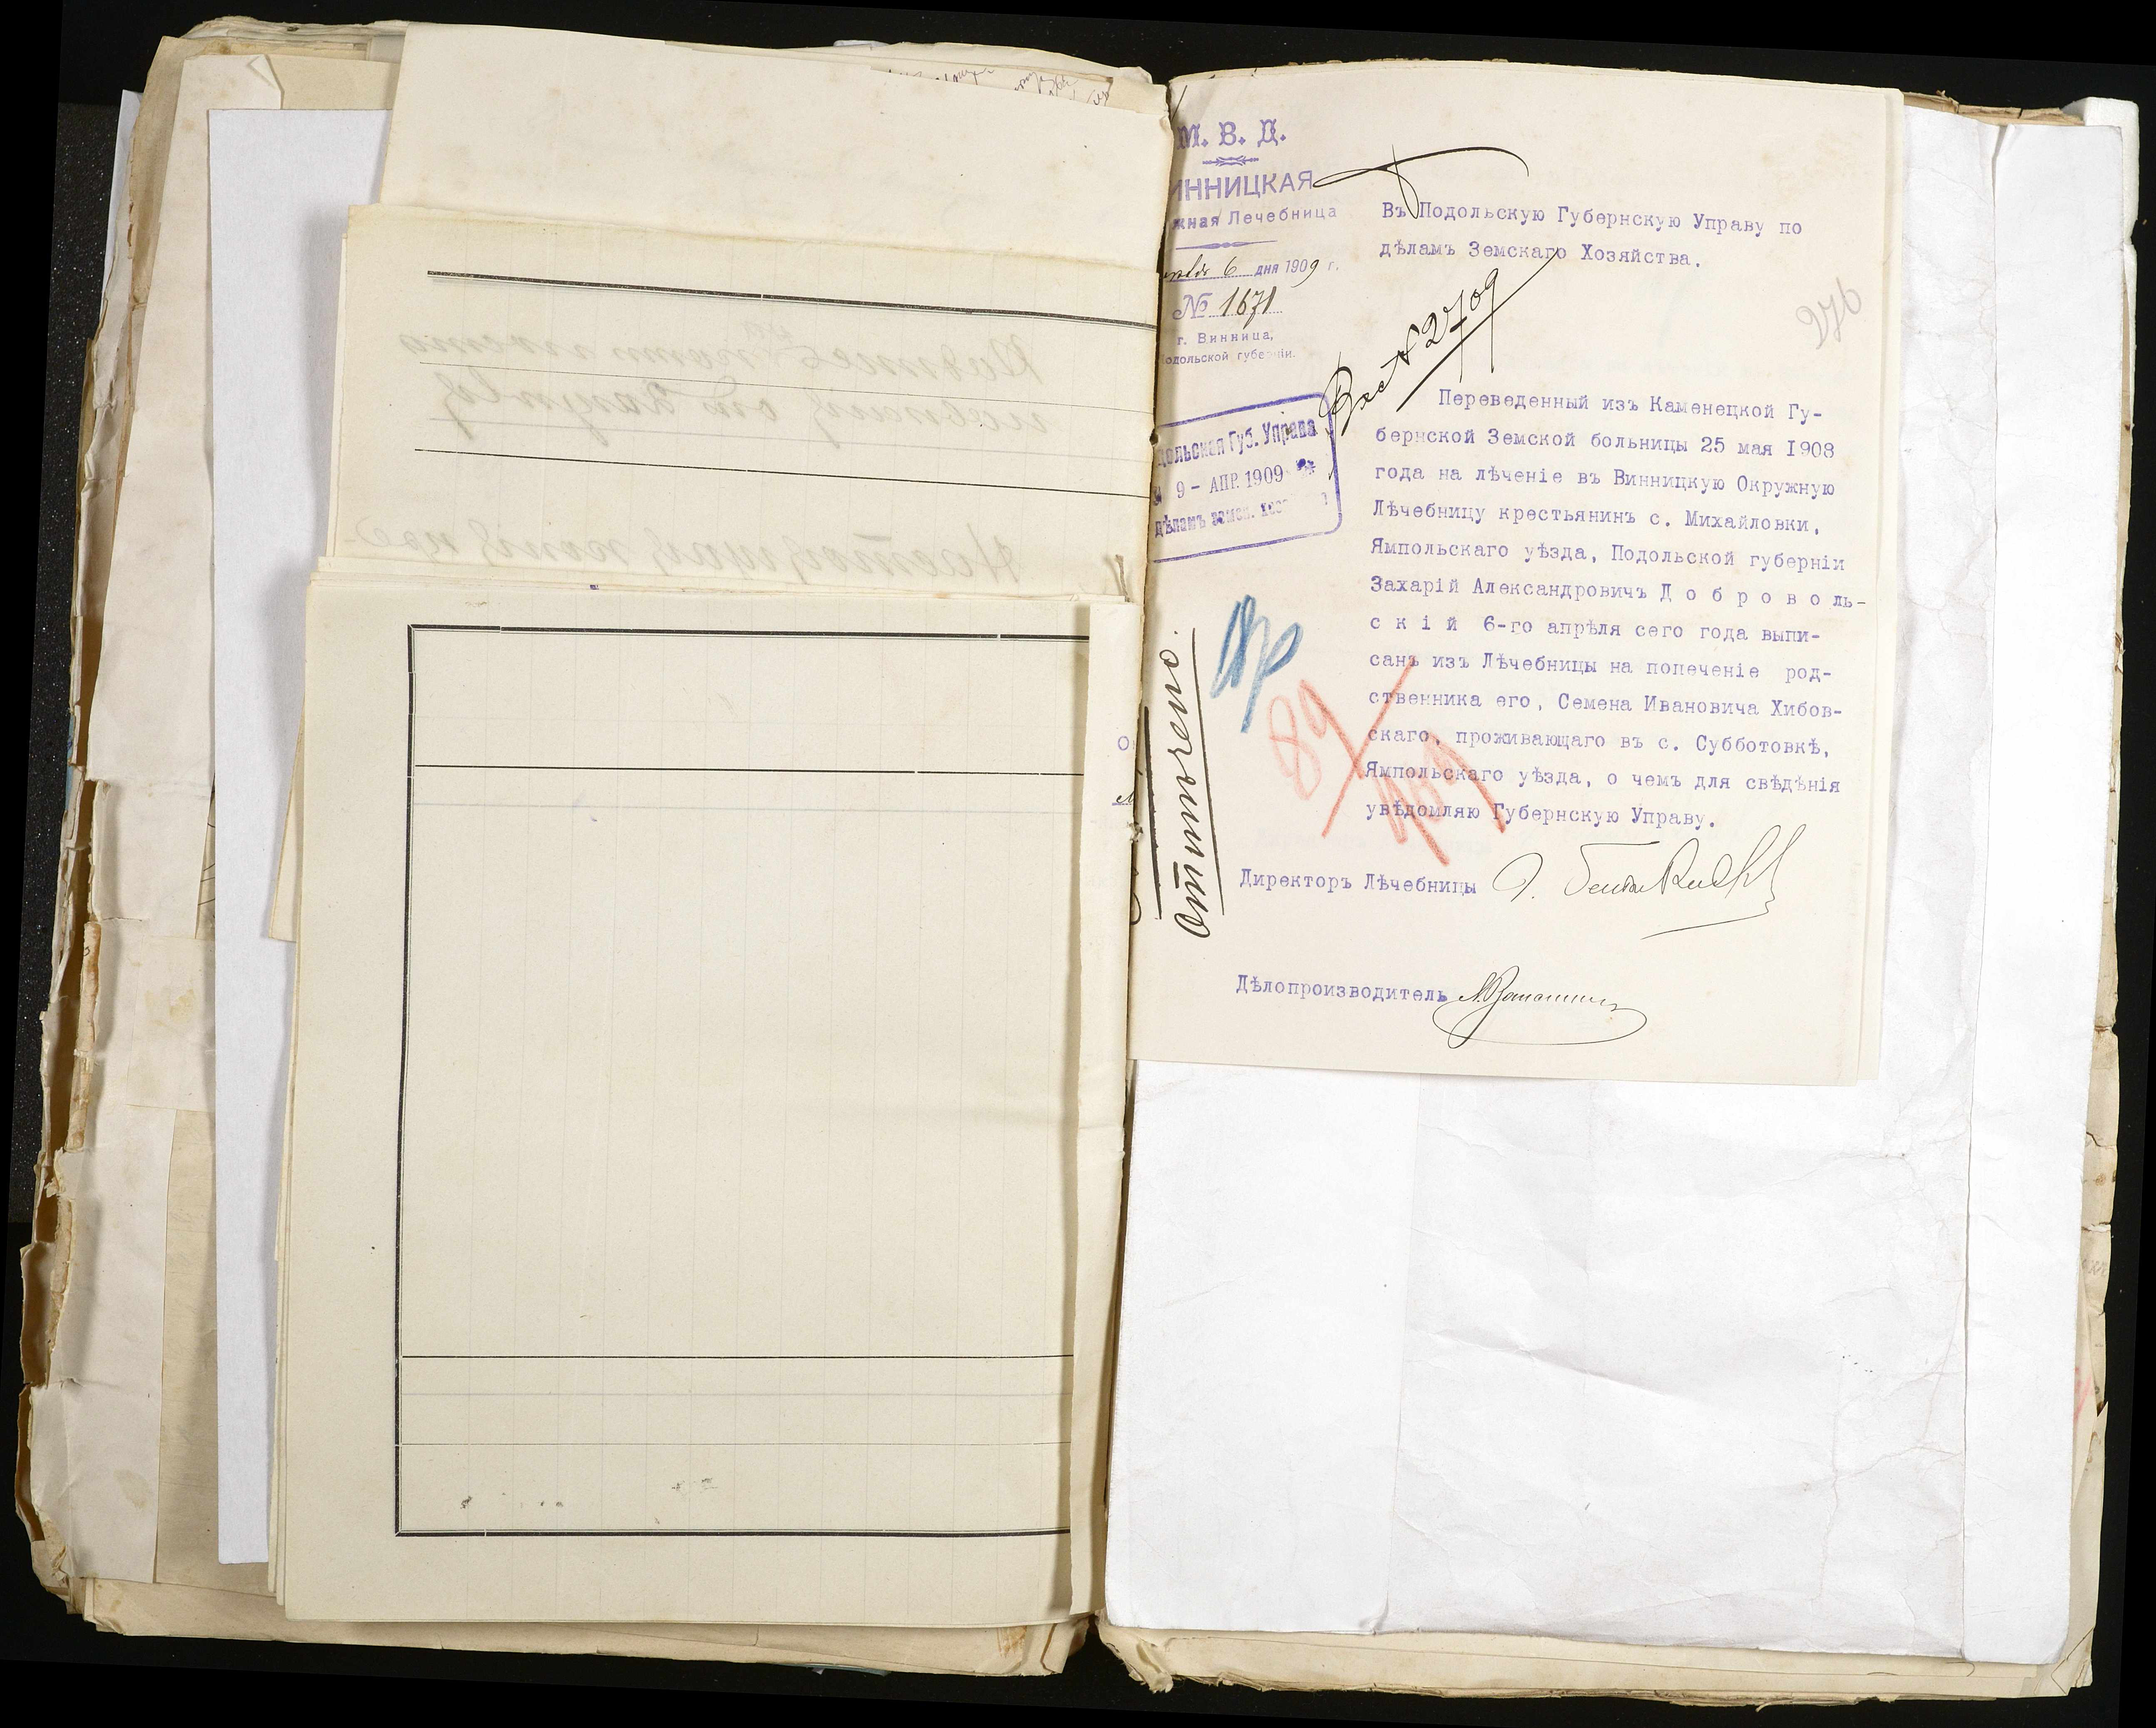 М. В. Д.
ИННИЦКАЯ
жная Лечебница
6 дня 1909 г.
№ 1671
г. Винница,
одольской губерніи.
Въ Подольскую Губернскую Управу по
дѣламъ Земскаго Хозяйства.
Вх № 2709
276
ольская Губ. Управа
9 – АПР. 1909
дѣламъ земск. хоз
Переведенный изъ Каменецкой Гу-
бернской Земской больницы 25 мая 1908
года на лѣченіе въ Винницкую Окружную
Лѣчебницу крестьянинъ с. Михайловки,
Ямпольскаго уѣзда, Подольской губерніи
Захарій Александровичъ Д о б р о в о ль-
с к і й 6-го апрѣля сего года выпи-
санъ изъ Лѣчебницы на попеченіе род-
ственника его, Семена Ивановича Хибов-
скаго, проживающаго въ с. Субботовкѣ,
Ямпольскаго уѣзда, о чемъ для свѣдѣнія
увѣдомляю Губернскую Управу.
Отмѣчено.
89/409
Директоръ Лѣчебницы
Дѣлопроизводитель